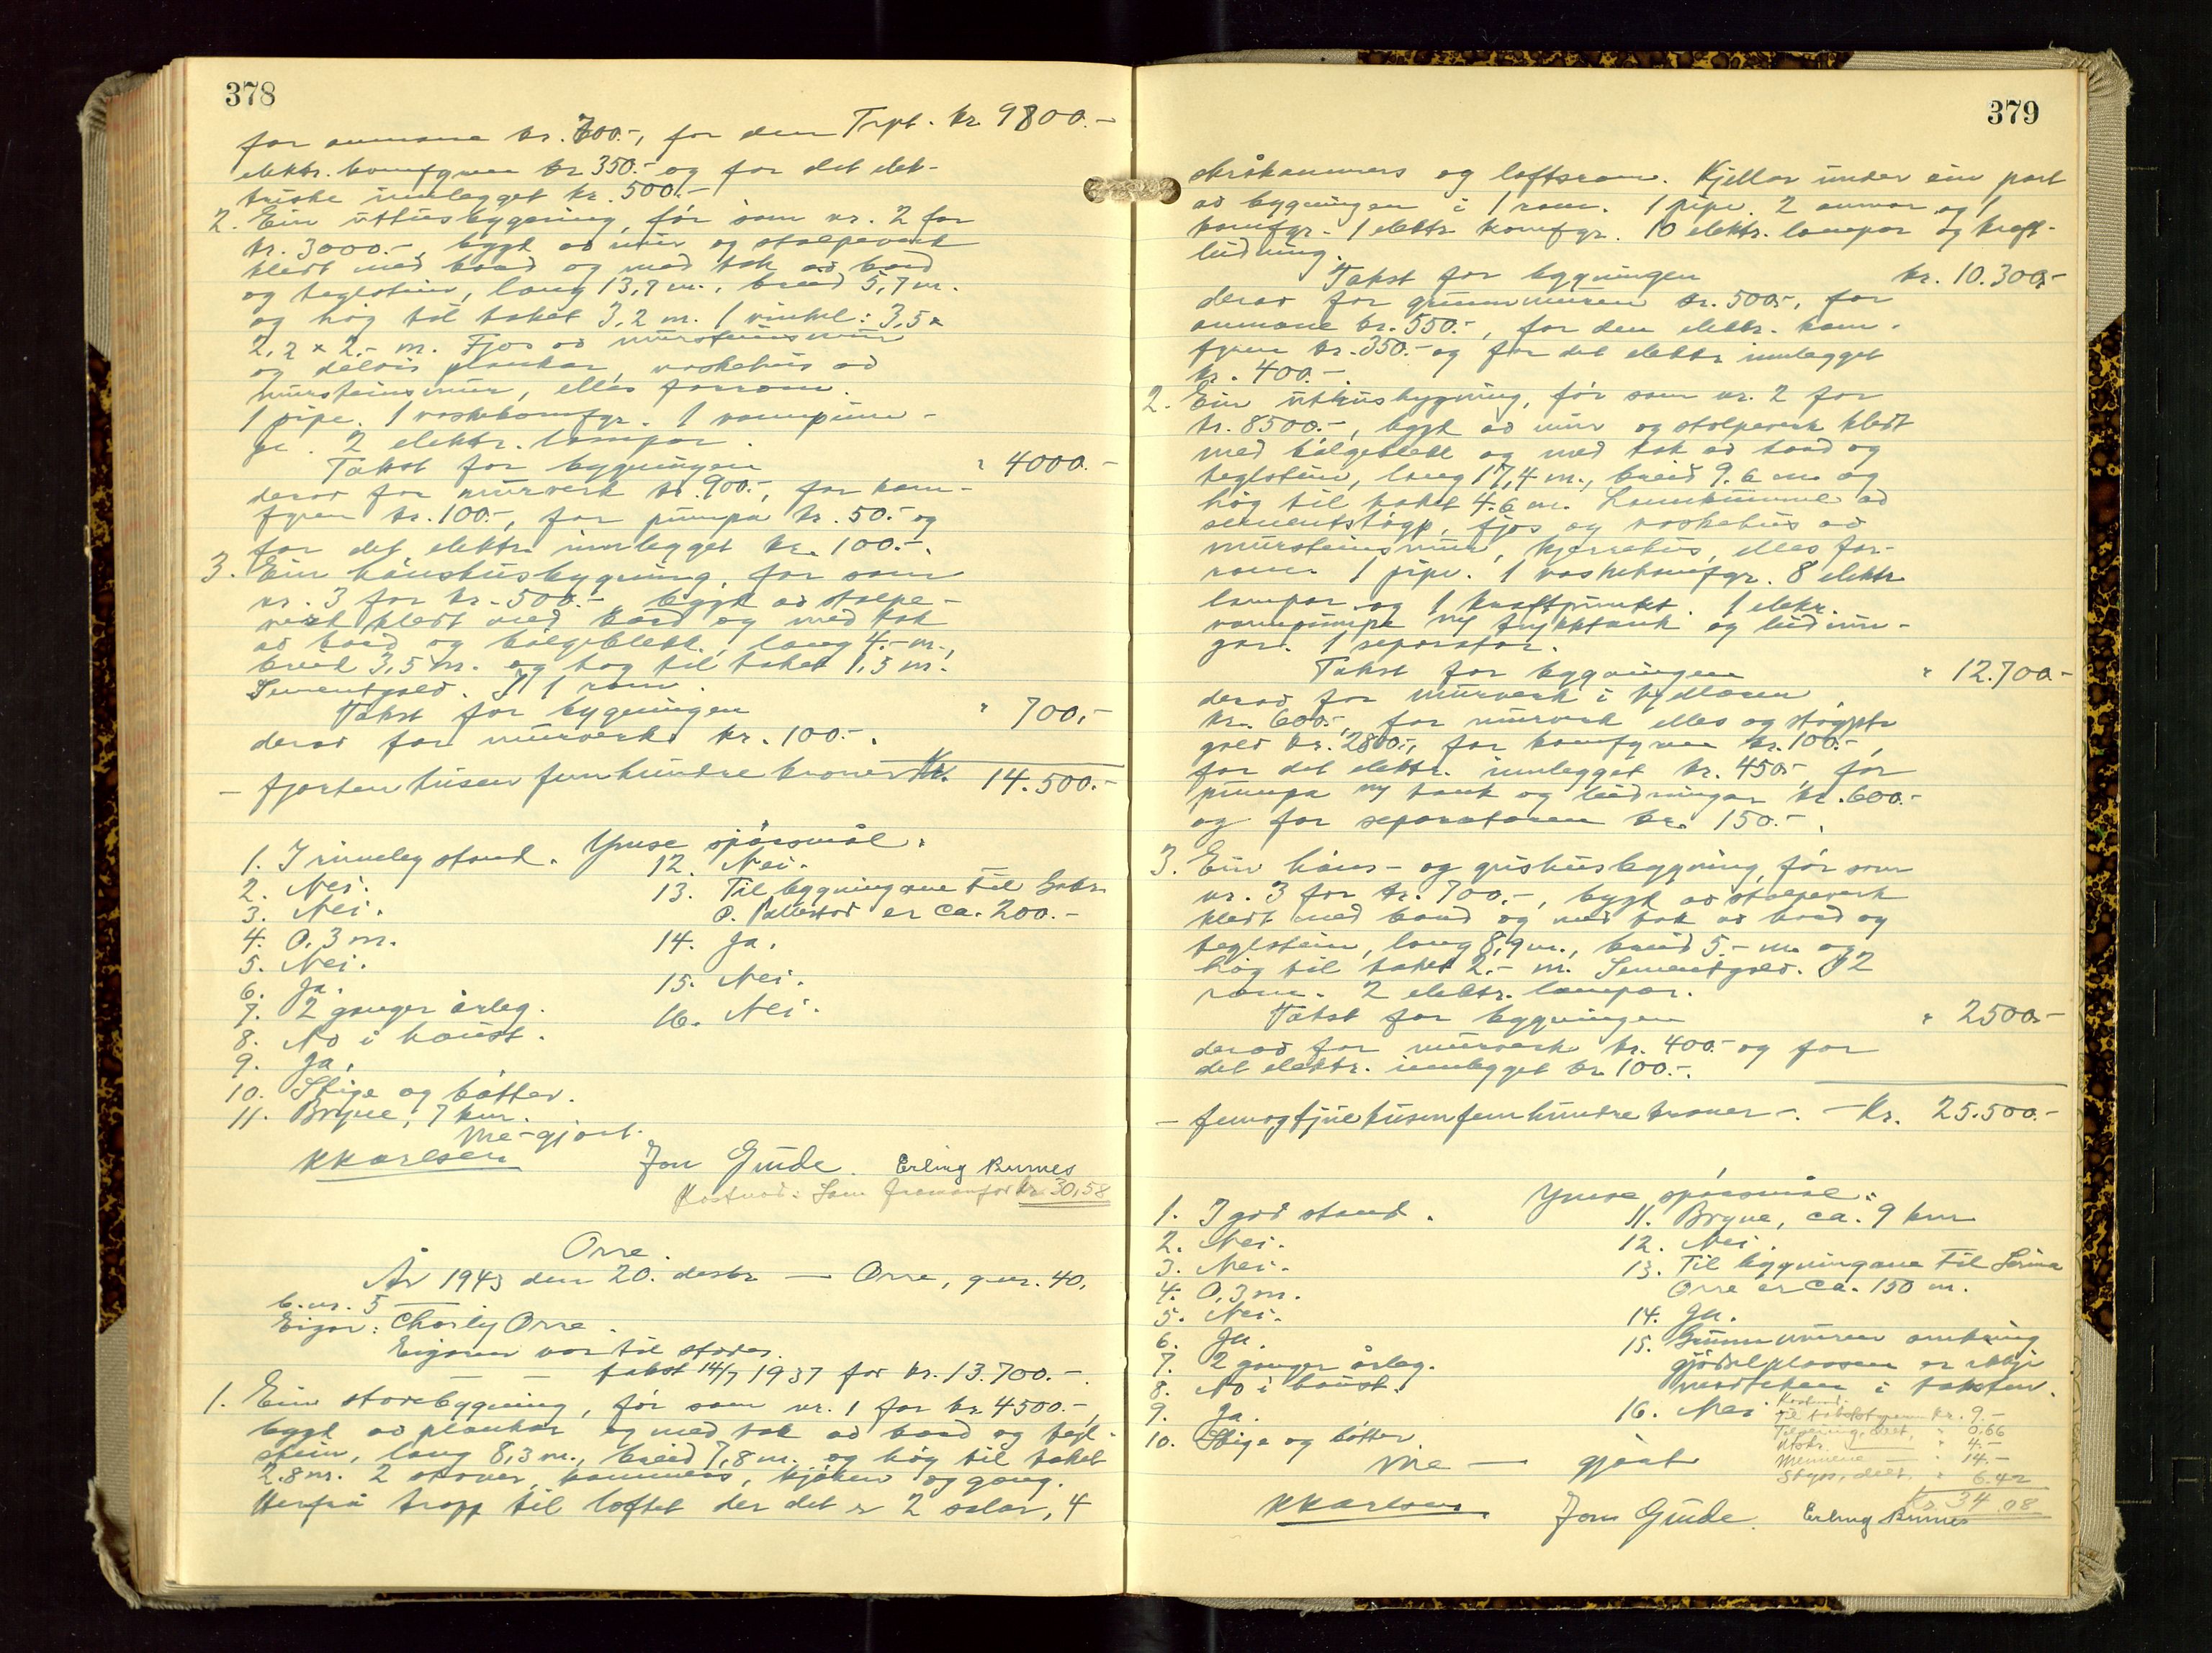 378
Trpt. kr. 9800.-
for omnane kr. 700.-, for den
elektr. komfyren kr. 350.- og for det elek-
triske innlegget kr. 500.-
2. Ein uthusbygning, før som nr. 2 for
kr. 3000.-, bygt av mur og stolpeverk
kledt med bord og med tak av bord
og teglstein, lang 13,7 m., breid 5,7 m.
og høg til taket 3,2 m. 1 vinkel: 3,5 x
2,2 x 2.- m. Fjos av mursteinsmur
og delvis plankar, vaskehus av
mursteinsmur, elles forrom.
1 pipe. 1 vaskekomfyr. 1 vannpum-
pe. 2 elektr. lampor.
Takst for bygningen " 4000.-
derav for murverk kr. 900.-, for kom-
fyren kr. 100.-, for pumpa kr. 50.- og
for det elektr. innlegget kr. 100.-.
3. Ein hønsehusbygning, før som
nr. 3 for kr. 500.-, bygt av stolpe-
verk kledt med bord og med tak
av bord og bølgeblekk, lang 4.- m.,
breid 3,5 m. og høg til taket 1,5 m.
Sementgolv. I 1 rom.
Takst for bygningen " 700,-
derav for murverk kr. 100.-.
- fjorten tusen femhundre kroner Kr. 14.500.-
Ymse spørsmål:
1. I rimeleg stand.
2. Nei.
3. Nei.
4. 0,3 m.
5. Nei.
6. Ja.
7. 2 gonger årleg.
8. No i haust.
9. Ja.
10. Stige og bøtter.
11. Bryne, 7 km.
12. Nei.
13. Til bygningane til Gabr.
O. Pollestad er ca. 200.-
14. Ja.
15. Nei.
16. Nei.
Me - gjort.
KKarlsen Jon Guide. Erling Rumes
Kostnad: Som framanfor kr. 30,58
Orre.
År 1943 den 20. desbr. — Orre, g.nr. 40,
b.nr. 5 —
Eigar: Charly Orre.
Eigaren var til stades.
— — takst 14/7 1937 for kr. 13.700.-.
1. Ein stovebygning, før som nr. 1 for kr. 4500.-,
bygt av plankar og med tak av bord og tegl-
stein, lang 8,3 m., breid 7,8 m. og høg til taket
2.8 m. 2 stover, kammers, kjøken og gang.
Herfrå tropp til loftet der det er 2 salar, 4
379
skråkammers og loftsrom. Kjellar under ein part
av bygningen i 1 rom. 1 pipe. 2 omnar og 1
komfyr. 1 elektr. komfyr. 10 elektr. lampor og kraft-
leidning.
Takst for bygningen kr. 10.300.-
derav for grunnmuren kr. 500.-, for
omnane kr. 550.-, for den elektr. kom-
fyren kr. 350.- og for det elektr. innlegget
kr. 400.-.
2. Ein uthusbygning, før som nr. 2 for
kr. 8500.-, bygt av mur og stolpeverk kledt
med bølgeblekk og med tak av bord og
teglstein, lang 17,4 m., breid 9.6 m. og
høg til taket 4.6 m. Lannkumme av
sementstøyp, fjos og vaskehus av
mursteinsmur, kjerrehus, elles for-
rom. 1 pipe. 1 vaskekomfyr. 8 elektr.
lampor og 1 kraftpunkt. 1 elekr.
vannpumpe m/ trykktank og leidnin-
gar. 1 separator.
Takst for bygningen " 12.700.-
derav for murverk i kjellaren
kr. 600.-, for murverk elles og støypte
golv kr. 2800.-, for komfyren kr. 100.-,
for det elektr. innlegget kr. 450.-, for
pumpa m/ tank og leidningar kr. 600.-
og for separatoren kr. 150.-.
3. Ein høns- og grishusbygning, før som
nr. 3 for kr. 700.-, bygt av stolpeverk
kledt med bord og med tak av bord og
teglstein, lang 8,9 m., breid 5.- m. og
høg til taket 2.- m. Sementgolv. I 2
rom. 2 elektr. lampor.
Takst for bygningen " 2500.-
derav for murverk kr. 400.- og for
det elektr. innlegget kr. 100.-.
- femogtjue tusen femhundre kroner -. - Kr. 25.500.-
Ymse spørsmål:
1. I god stand.
2. Nei.
3. Nei.
4. 0,3 m.
5. Nei.
6. Ja.
7. 2 gonger årleg.
8. No i haust.
9. Ja.
10. Stige og bøtter.
11. Bryne, ca. 9 km
12. Nei.
13. Til bygningane til Serina
Orre er ca. 150 m.
14. Ja.
15. Grunnmuren omkring
gjødselplassen er ikkje
medteken i taksten.
16. Nei.
Kostnad:
Til takstskjema kr. 9.-
0.66
Motr. — " 4.-
Mennene — " 14.-
Skyss, delt. " 6.42
Kr. 34.08
Me — gjort
KKarlsen Jon Guide. Erling Rumes